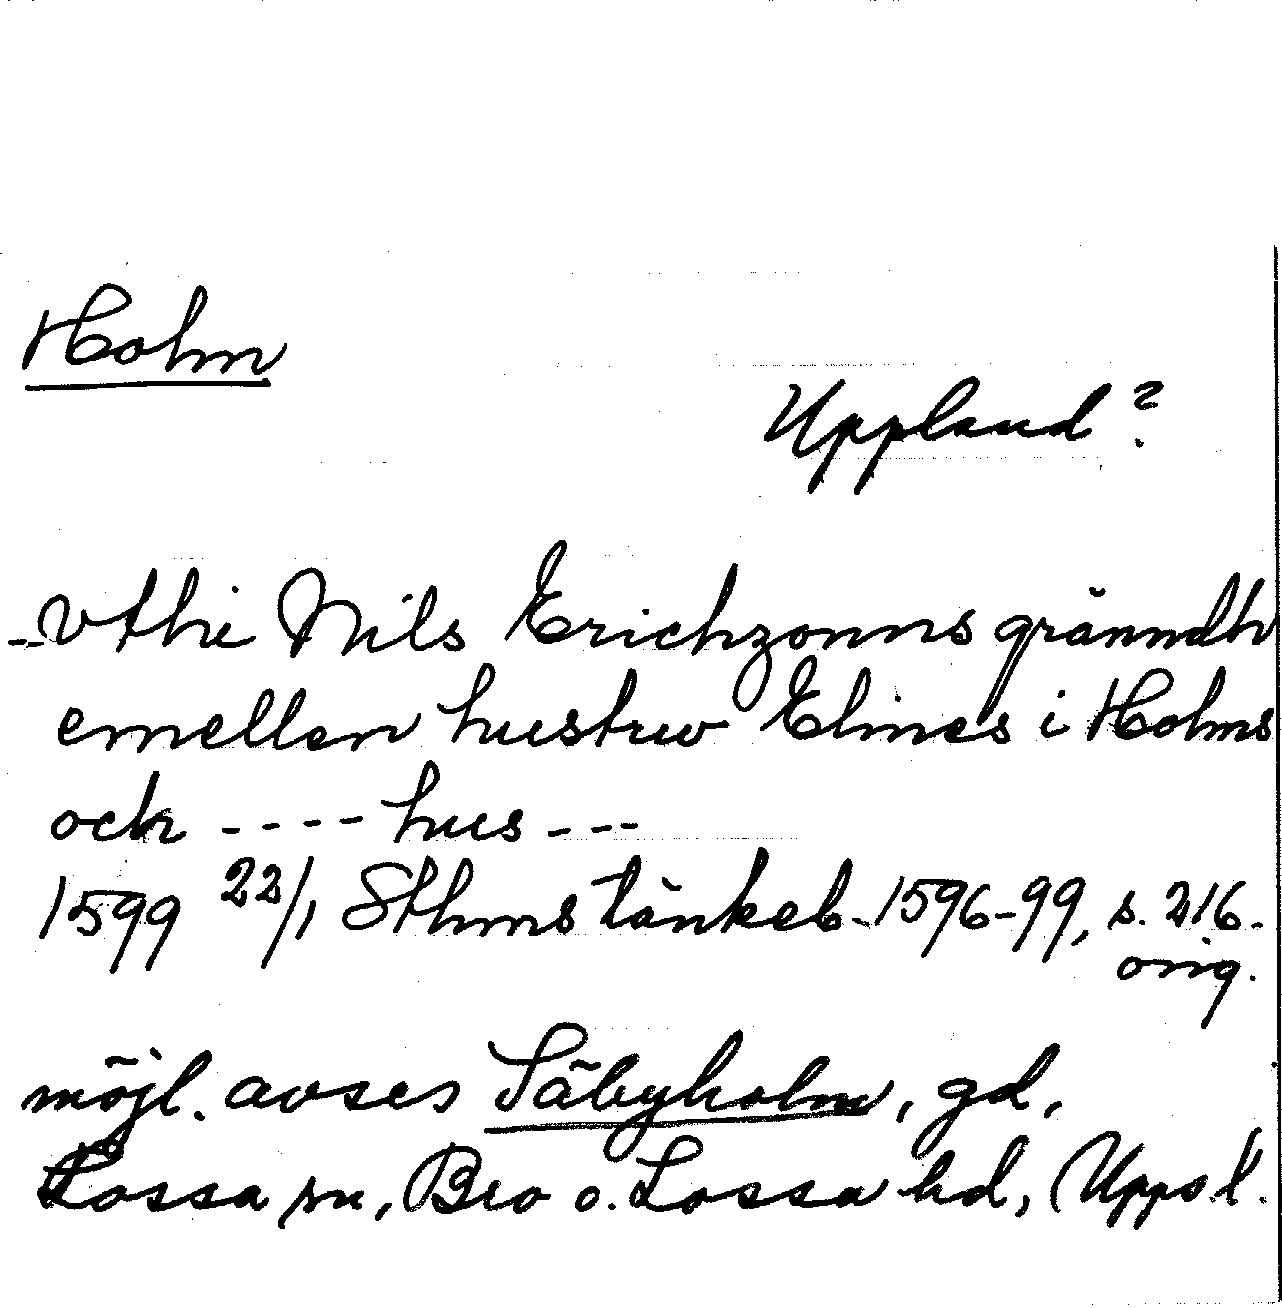 Holm
Uppland?
--Vthi Nils Erichzonns gränndh
emellan hustrw Elines i Holms
och ---- hus ---
1599 22/1 Sthms tänkeb. 1596-99, s. 216.
orig.
möjl. avses Säbyholm, gd,
Lossa sn, Bro o. Lossa hd, Upps.l.